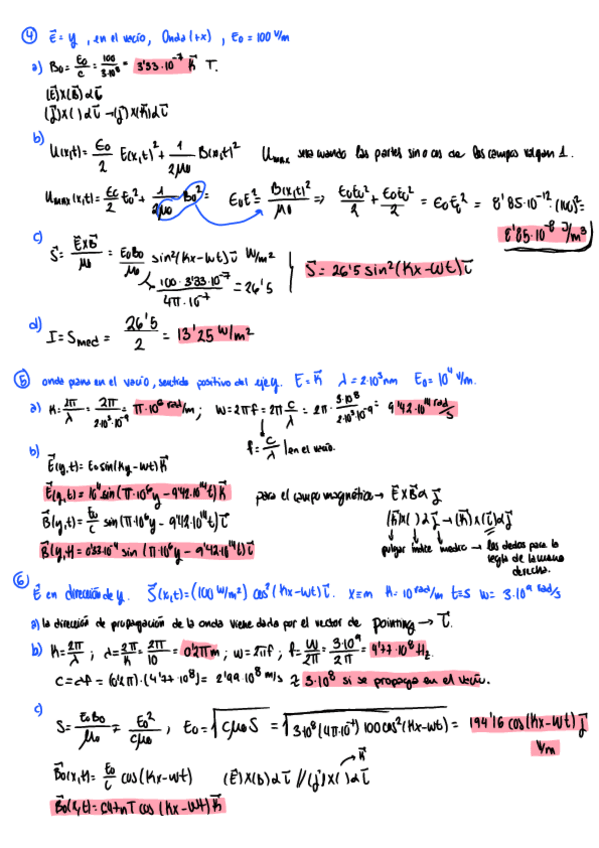 ④ E⃗ = y, en el vacío, Onda (+x), E₀ = 100 V/m
a) B₀ = E₀/c = 100/3·10⁸ = 3'33·10⁻⁷ k⃗ T.
(E⃗)x(B⃗) α i⃗
(j⃗)x( ) α i⃗ → (j⃗)x(k⃗) α i⃗
b) U(x,t) = ε₀/2 E(x,t)² + 1/2μ₀ B(x,t)² Umax sera cuando las partes sin o cos de los campos valgan 1.
Umax(x,t) = ε₀/2 E₀² + 1/2μ₀ B₀² = ε₀E² = B(x,t)²/μ₀ ⇒ ε₀E₀²/2 + ε₀E₀²/2 = ε₀E₀² = 8'85·10⁻¹²·(100)² =
8'85·10⁻⁸ J/m³
c) S⃗ = E⃗xB⃗/μ₀ = E₀B₀/μ₀ sin²(kx-wt) i⃗ W/m² S⃗ = 26'5 sin²(kx-wt) i⃗
100·3'33·10⁻⁷/4π·10⁻⁷ = 26'5
d) I = Smed = 26'5/2 = 13'25 W/m²
⑤ onda plana en el vacío, sentido positivo del eje y. E = k⃗ λ = 2·10³ nm E₀ = 10⁴ V/m.
a) k = 2π/λ = 2π/2·10³·10⁻⁹ = π·10⁶ rad/m; w = 2πf = 2π c/λ = 2π· 3·10⁸/2·10³·10⁻⁹ = 9'42·10¹⁴ rad/s
f = c/λ | en el vacío.
b) E⃗(y,t) = E₀ sin(ky-wt) k⃗
E⃗(y,t) = 10⁴ sin(π·10⁶y - 9'42·10¹⁴t) k⃗ para el campo magnético → E⃗xB⃗ α j⃗
B⃗(y,t) = E₀/c sin(π·10⁶y - 9'42·10¹⁴t) i⃗ (k⃗)x( ) α j⃗ → (k⃗)x(i⃗) α j⃗
B⃗(y,t) = 0'33·10⁻⁴ sin(π·10⁶y - 9'42·10¹⁴t) i⃗ pulgar índice medio → los dedos para la
regla de la mano
derecha.
⑥ E⃗ en dirección de y. S⃗(x,t) = (100 W/m²) cos²(kx-wt) i⃗. x=m k=10 rad/m t=s w=3·10⁹ rad/s
a) la dirección de propagación de la onda viene dada por el vector de pointing → i⃗.
b) k = 2π/λ; λ = 2π/k = 2π/10 = 0'2π m; w = 2πf; f = w/2π = 3·10⁹/2π = 4'77·10⁸ Hz.
c = λf = (0'2π)·(4'77·10⁸) = 2'99·10⁸ m/s ≈ 3·10⁸ si se propaga en el vacío.
c) S = E₀B₀/μ₀ = E₀²/cμ₀, E₀ = √cμ₀S = √3·10⁸(4π·10⁻⁷)100cos²(kx-wt) = 194'16 cos(kx-wt) j⃗
V/m
B⃗₀(x,t) = E₀/c cos(kx-wt) (E⃗)x(b) α i⃗ // (j⃗)x( ) α i⃗ → k⃗
B⃗₀(x,t) = 647nT cos(kx-wt) k⃗